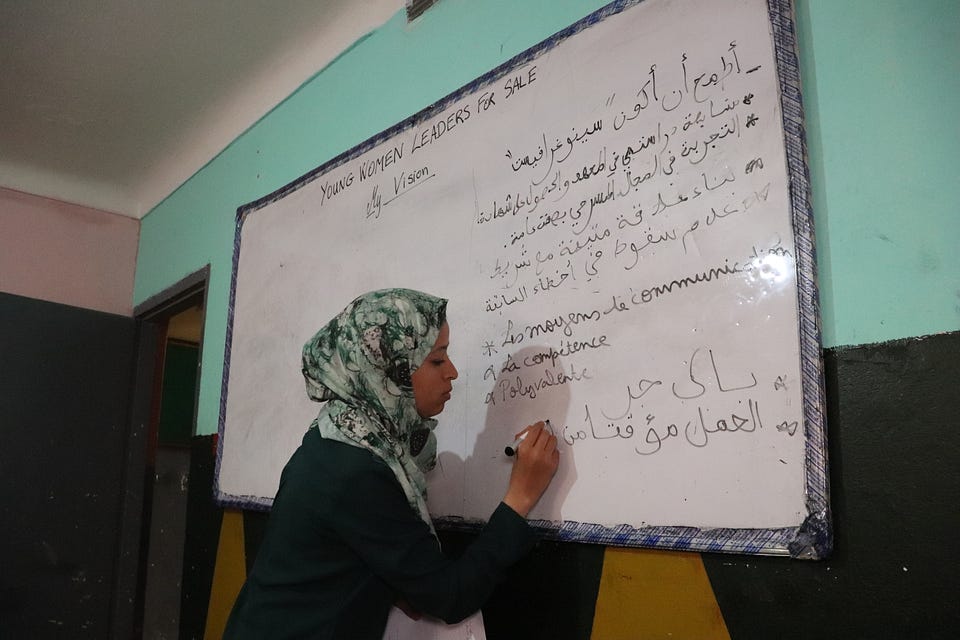 YOUNG WOMEN LEADERS FOR SALE
My Vision
- أطمح أن أكون "سينوغرافيست"
* متابعة دراستي في المعهد والحصول على شهادة
* التجربة في المجال المسرحي بصفة عامة.
* بناء علاقة متينة مع شريك
* عدم سقوط في أخطاء السابقة
* Les moyens de communication
* La compétence
* Polyvalente
* حر
* العمل مؤقتا من